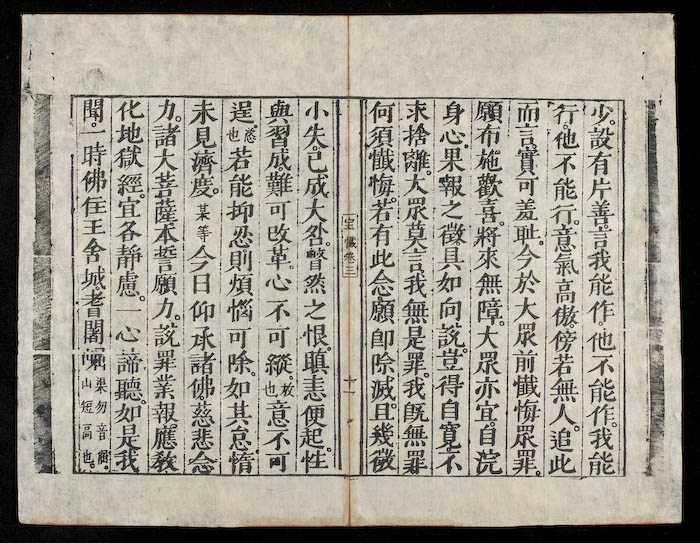 少。設有片善。言我能作。他不能作。我能
行。他不能行。意氣高傲。傍若無人。追此
而言。實可羞恥。今於大眾前懺悔眾罪。
願布施歡喜。將來無障。大眾亦宜自浣
身心。果報之徵。具如向說。豈得自寬。不
求捨離。大眾莫言。我無是罪。我既無罪。
何須懺悔。若有此念。願卽除滅。且幾微
懺卷三
十一
小失。已成大咎。瞥然之恨。瞋恚便起。性
與習成。難可改革。心不可縱放也。意不可
逞也。若能抑忍。則煩惱可除。如其怠惰。
未見濟度。某等今日仰承諸佛慈悲念
力。諸大菩薩本誓願力。說罪業報應教
化地獄經。宜各靜慮。一心諦聽。如是我
聞。一時佛住王舍城。耆闍崛山短高也。